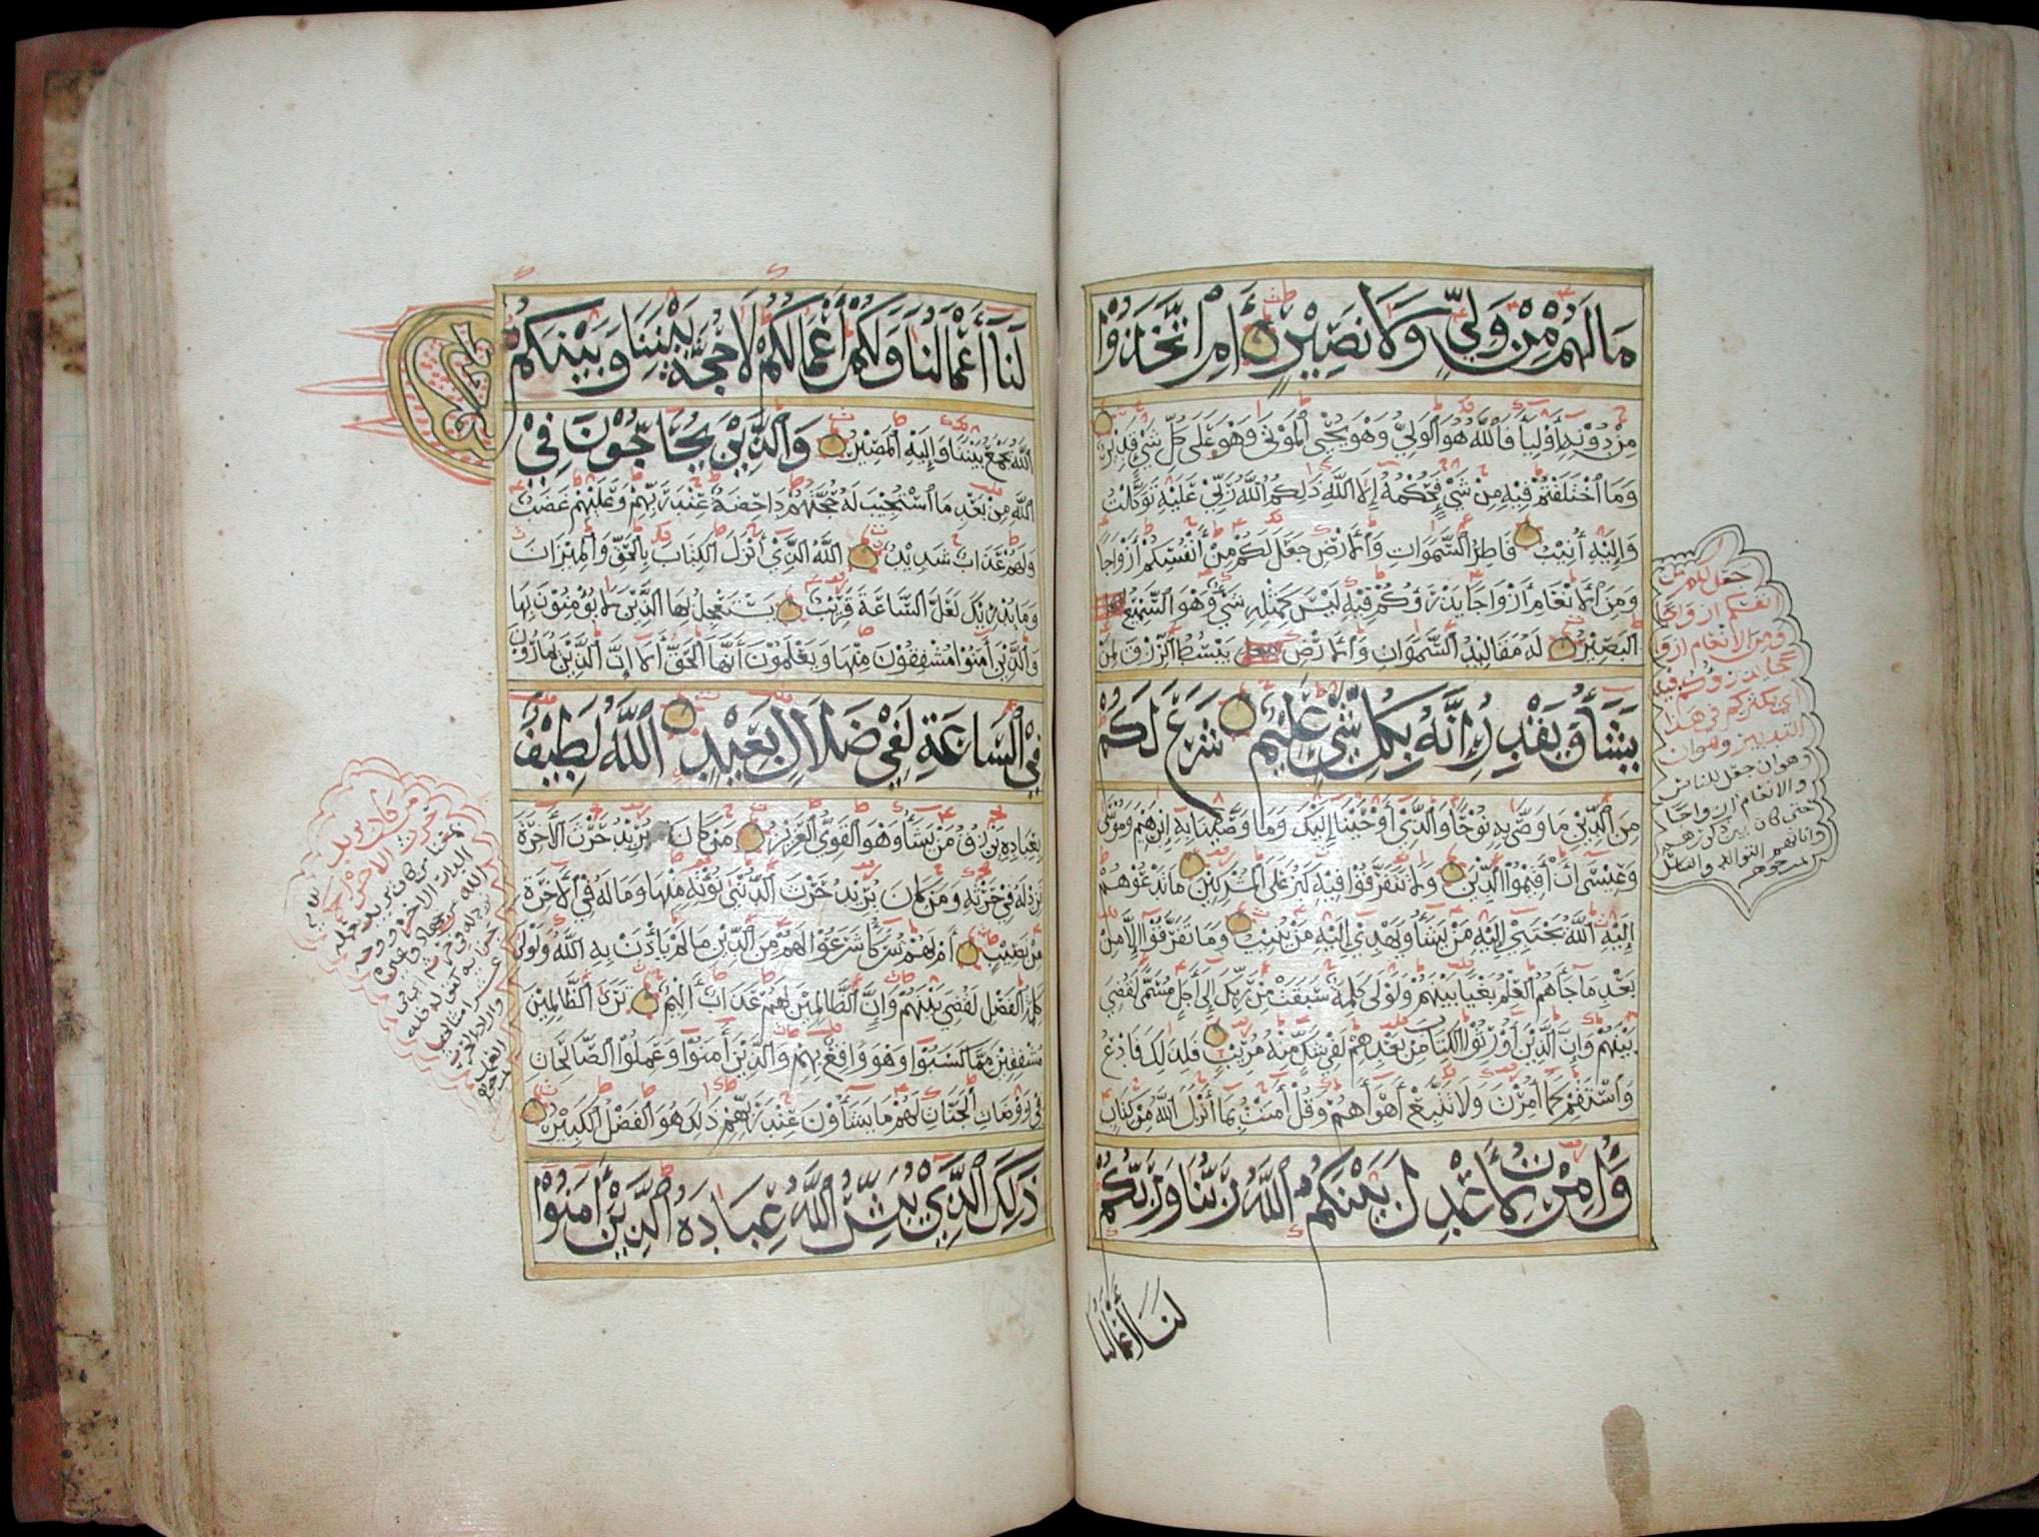 مَا لَهُمْ مِنْ وَلِيٍّ وَلَا نَصِيْرٍ أَمِ اتَّخَذُوْا
مِنْ دُوْنِهِ أَوْلِيَآ فَٱللَّهُ هُوَ ٱلْوَلِيُّ وَهُوَ يُحْيِي ٱلْمَوْتَى وَهُوَ عَلَى كُلِّ شَيْ قَدِيْرٌ
وَمَا ٱخْتَلَفْتُمْ فِيْهِ مِنْ شَيْ فَحُكْمُهُ إِلَى ٱللَّهِ ذَلِكُمُ ٱللَّهُ رَبِّيْ عَلَيْهِ تَوَكَّلْتُ
وَإِلَيْهِ أُنِيْبُ فَاطِرُ ٱلسَّمَوَاتِ وَٱلْأَرْضِ جَعَلَ لَكُمْ مِنْ أَنْفُسِكُمْ أَزْوَاجًا
وَمِنَ ٱلْأَنْعَامِ أَزْوَاجًا يَذْرَؤُكُمْ فِيْهِ لَيْسَ كَمِثْلِهِ شَيْ وَهُوَ ٱلسَّمِيْعُ
ٱلْبَصِيْرُ لَهُ مَقَالِيْدُ ٱلسَّمَوَاتِ وَٱلْأَرْضِ يَبْسُطُ ٱلرِّزْقَ لِمَنْ
يَشَآُ وَيَقْدِرُ إِنَّهُ بِكُلِّ شَيْ عَلِيْمٌ شَرَعَ لَكُمْ
مِنَ ٱلدِّيْنِ مَا وَصَّى بِهِ نُوْحًا وَٱلَّذِيْ أَوْحَيْنَا إِلَيْكَ وَمَا وَصَّيْنَا بِهِ إِبْرَهِيْمَ وَمُوْسَى
وَعِيْسَى أَنْ أَقِيْمُوْا ٱلدِّيْنَ وَلَا تَتَفَرَّقُوْا فِيْهِ كَبُرَ عَلَى ٱلْمُشْرِكِيْنَ مَا تَدْعُوْهُمْ
إِلَيْهِ ٱللَّهُ يَجْتَبِيْ إِلَيْهِ مَنْ يَشَآُ وَيَهْدِيْ إِلَيْهِ مَنْ يُنِيْبُ وَمَا تَفَرَّقُوْا إِلَّا مِنْ
بَعْدِ مَا جَآَهُمُ ٱلْعِلْمُ بَغْيًا بَيْنَهُمْ وَلَوْلَى كَلِمَةٌ سَبَقَتْ مِنْ رَبِّكَ إِلَى أَجَلٍ مُسَمًّى لَقُضِيَ
بَيْنَهُمْ وَإِنَّ ٱلَّذِيْنَ أُوْرِثُوْا ٱلْكِتَابَ مِنْ بَعْدِهِمْ لَفِيْ شَكٍّ مِنْهُ مُرِيْبٍ فَلِذَلِكَ فَٱدْعُ
وَٱسْتَقِمْ كَمَا أُمِرْتَ وَلَا تَتَّبِعْ أَهْوَآَهُمْ وَقُلْ آمَنْتُ بِمَا أَنْزَلَ ٱللَّهُ مِنْ كِتَابٍ
وَأُمِرْتُ لِأَعْدِلَ بَيْنَكُمْ ٱللَّهُ رَبُّنَا وَرَبُّكُمْ
لَنَا أَعْمَالُنَا
جعل لكم من
انفسكم ازواجا
ومن الانعام ازوا
جا يذرؤكم فيه
اي يكثركم في هذا
التدبير وهو ان
وهو ان جعل للناس
والانعام ازواجا
حتى كان بين ذكورهم
واناثهم التوالد والتناسل
لَنَآ أَعْمَالُنَا وَلَكُمْ أَعْمَالُكُمْ لَا حُجَّةَ بَيْنَنَا وَبَيْنَكُمُ
ٱللَّهُ يَجْمَعُ بَيْنَنَا وَإِلَيْهِ ٱلْمَصِيْرُ وَٱلَّذِيْنَ يُحَاجُّوْنَ فِيْ
ٱللَّهِ مِنْ بَعْدِ مَا ٱسْتُجِيْبَ لَهُ حُجَّتُهُمْ دَاحِضَةٌ عِنْدَ رَبِّهِمْ وَعَلَيْهِمْ غَضَبٌ
وَلَهُمْ عَذَابٌ شَدِيْدٌ ٱللَّهُ ٱلَّذِيْ أَنْزَلَ ٱلْكِتَابَ بِٱلْحَقِّ وَٱلْمِيْزَانَ
وَمَا يُدْرِيْكَ لَعَلَّ ٱلسَّاعَةَ قَرِيْبٌ يَسْتَعْجِلُ بِهَا ٱلَّذِيْنَ لَا يُؤْمِنُوْنَ بِهَا
وَٱلَّذِيْنَ آمَنُوْا مُشْفِقُوْنَ مِنْهَا وَيَعْلَمُوْنَ أَنَّهَا ٱلْحَقُّ أَلَا إِنَّ ٱلَّذِيْنَ يُمَارُوْنَ
فِي ٱلسَّاعَةِ لَفِيْ ضَلَالٍ بَعِيْدٍ ٱللَّهُ لَطِيْفٌ
بِعِبَادِهِ يَرْزُقُ مَنْ يَشَآُ وَهُوَ ٱلْقَوِيُّ ٱلْعَزِيْزُ مَنْ كَانَ يُرِيْدُ حَرْثَ ٱلْآخِرَةِ
نَزِدْ لَهُ فِيْ حَرْثِهِ وَمَنْ كَانَ يُرِيْدُ حَرْثَ ٱلدُّنْيَى نُؤْتِهِ مِنْهَا وَمَا لَهُ فِيْ ٱلْآخِرَةِ
مِنْ نَصِيْبٍ أَمْ لَهُمْ شُرَكَآُ شَرَعُوْا لَهُمْ مِنَ ٱلدِّيْنِ مَا لَمْ يَأْذَنْ بِهِ ٱللَّهُ وَلَوْلَى
كَلِمَةُ ٱلْفَصْلِ لَقُضِيَ بَيْنَهُمْ وَإِنَّ ٱلظَّالِمِيْنَ لَهُمْ عَذَابٌ أَلِيْمٌ تَرَى ٱلظَّالِمِيْنَ
مُشْفِقِيْنَ مِمَّا كَسَبُوْا وَهُوَ وَاقِعٌ بِهِمْ وَٱلَّذِيْنَ آمَنُوْا وَعَمِلُوْا ٱلصَّالِحَاتِ
فِيْ رَوْضَاتِ ٱلْجَنَّاتِ لَهُمْ مَا يَشَآُوْنَ عِنْدَ رَبِّهِمْ ذَلِكَ هُوَ ٱلْفَضْلُ ٱلْكَبِيْرُ
ذَلِكَ ٱلَّذِيْ يُبَشِّرُ ٱللَّهُ عِبَادَهُ ٱلَّذِيْنَ آمَنُوْا
من كان يريد
حرث الاخرة